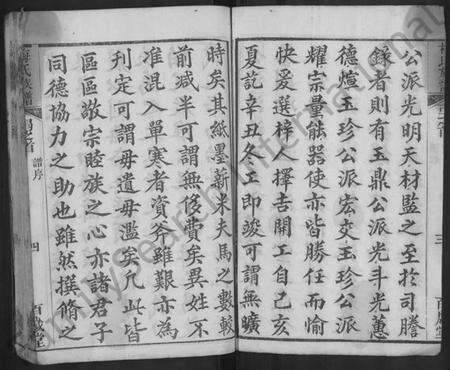 公派光明天材監之至於司謄
錄者則有玉鼎公派光斗光蕙
德煊玉珍公派宏交玉珍公派
耀宗量能器使亦皆勝任而愉
快爰選梓人擇吉開工自己亥
夏訖辛丑冬工即竣可謂無曠
時矣其紙墨薪米夫馬之數較
前减半可謂無侈費矣異姓不
准混入單寒者資斧雖艱亦為
刋定可謂毋遺毋濫矣凡此皆
區區敬宗睦族之心亦諸君子
同德協力之助也雖然撰脩之
譜序
四
三
FamilySearch International